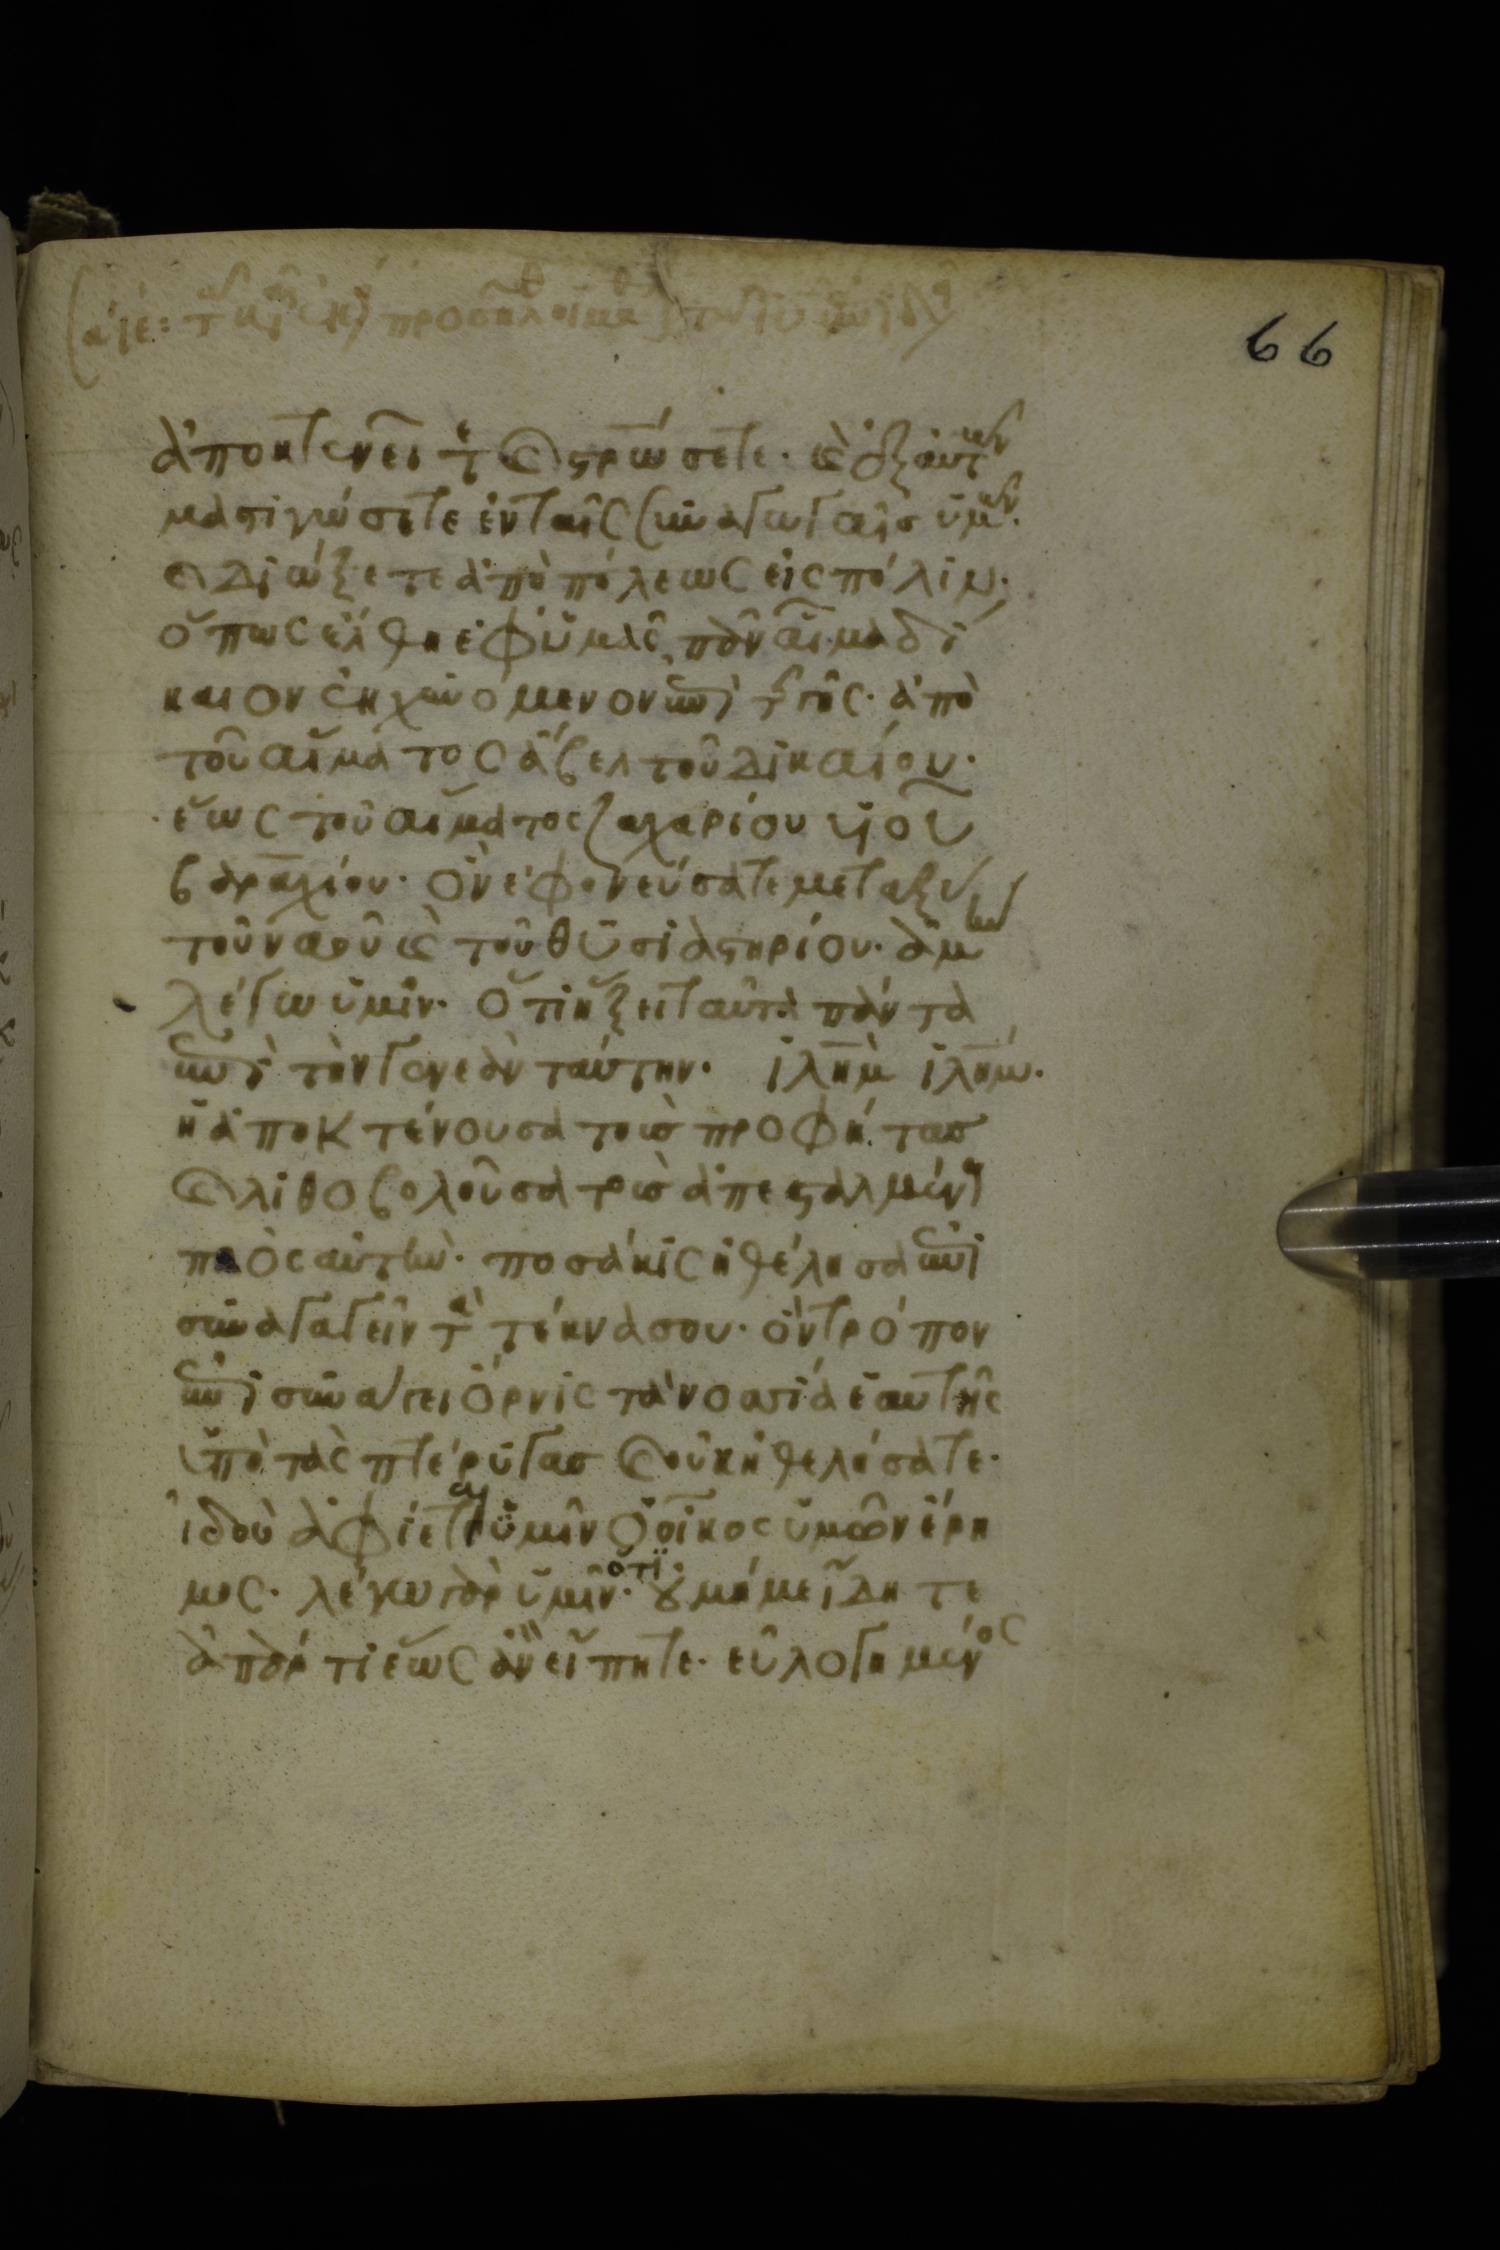 66
ἀποκτενεῖτε καὶ στρώσετε· καὶ ἐξ αὐτῶν
μαστιγώσετε ἐν ταῖς συναγωγαῖσ ὑμῶν·
καὶ διώξετε ἀπὸ πόλεως εἰς πόλιν·
ὅπως ἔλθη ἐφ ὑμᾶς πᾶν αἷμα δί
καιον ἐκχυνόμενον ἐπὶ τῆς γῆς· ἀπὸ
τοῦ αἵματος ἄβελ τοῦ δικαίου·
ἕως τοῦ αἵματος ζαχαρίου υἱοῦ
βαραχίου· ὃν ἐφονεύσατε μεταξὺ
τοῦ ναοῦ καὶ τοῦ θυσιαστηρίου· ἀμὴν
λέγω ὑμῖν· ὅτι ἥξει ταῦτα πάντα
ἐπὶ τὴν γενεὰν ταύτην· ἱλὴμ ἱλήμ·
ἡ ἀποκτένουσα τοὺσ προφήτασ
καὶ λιθοβολοῦσα τοὺσ ἀπεσταλμένους
πρὸς αὐτήν· ποσάκις ἠθέλησα ἐπι
συναγαγεῖν τὰ τέκνα σου· ὃν τρόπον
ἐπισυνάγει ὄρνις τὰ νοσσία ἑαυτῆς
ὑπὸ τὰς πτέρυγασ καὶ οὐκ ἠθελήσατε·
ἰδοὺ ἀφίεται ὑμῖν ὁ οἶκος ὑμῶν ἔρη
μος· λέγω γὰρ ὑμῖν· ὅτι οὐ μή με ἴδητε
ἀπάρτι ἕως ἂν εἴπητε· εὐλογημένος